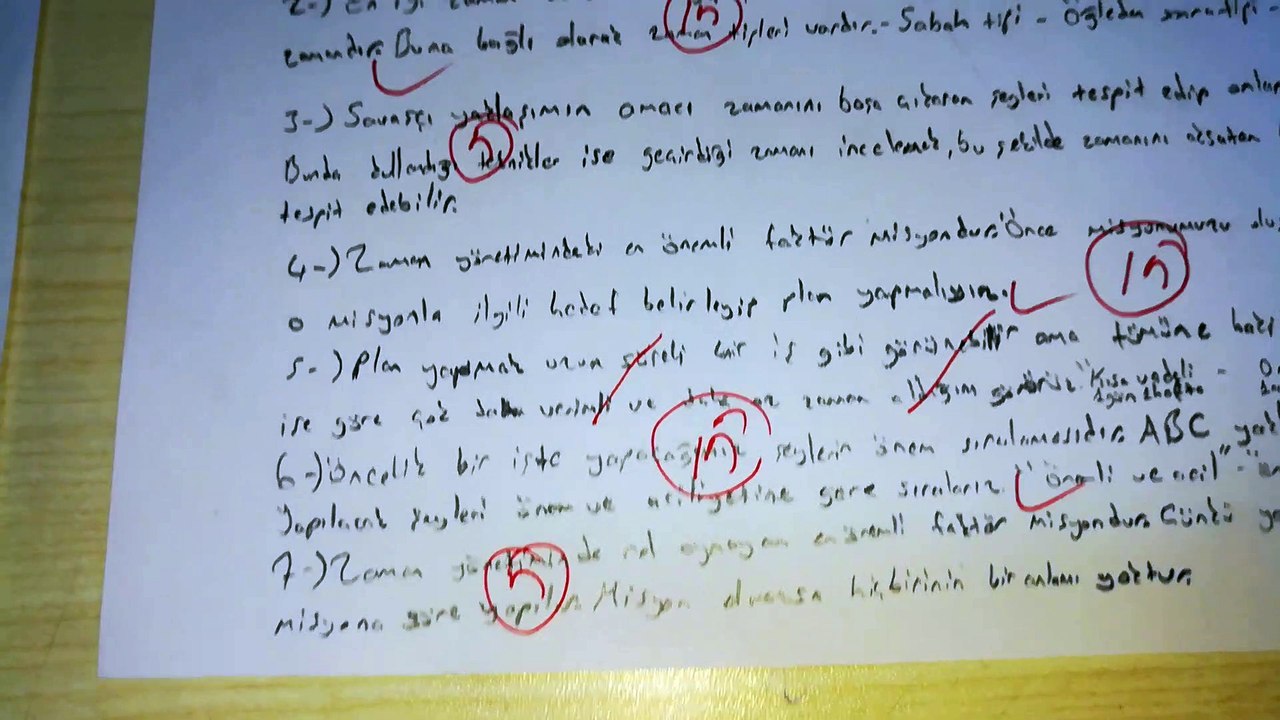 2-) En iyi zaman
zamandır. Buna bağlı olarak zaman tipleri vardır.- Sabah tipi - Öğleden sonra tipi -
15
3-) Savaşçı yaklaşımın amacı zamanını boşa çıkaran şeyleri tespit edip
5
Bunda kullandığı teknikler ise geçirdiği zamanı incelemek, bu şekilde zamanını aksatan
tespit edebilir.
4-) Zaman yönetimindeki en önemli faktör misyondur. Önce misyonumuzu
15
o misyonla ilgili hedef belirleyip plan yapmalıyız.
5-) Plan yapmak uzun süreli bir iş gibi görünebilir ama tümüne
ise göre çok daha verimli ve daha az zaman aldığını görürüz. "Kısa vadeli -
15
6-) Öncelik bir işte yapacağımız şeylerin önem sıralamasıdır. ABC
Yapılacak şeyleri önem ve aciliyetine göre sıralarız. "Önemli ve acil" -
7-) Zaman yönetiminde rol oynayan en önemli faktör misyondur. Çünkü
5
misyona göre yapılır. Misyon olmazsa hiçbirinin bir anlamı yoktur.